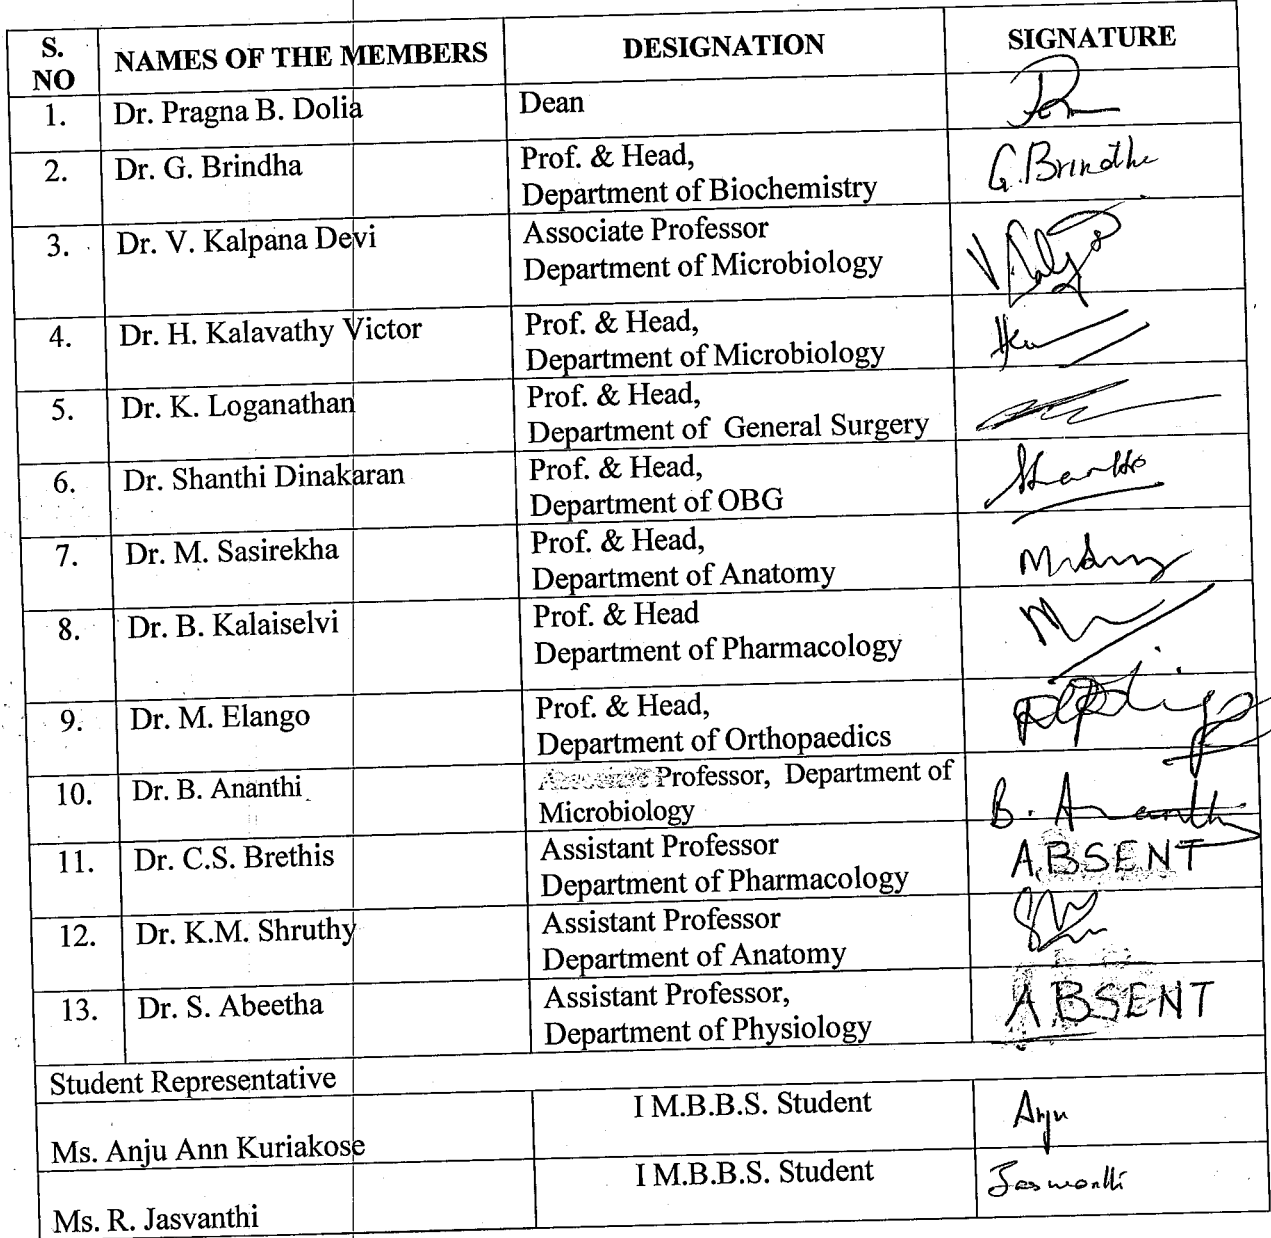 S. NO NAMES OF THE MEMBERS DESIGNATION SIGNATURE
1. Dr. Pragna B. Dolia Dean
2. Dr. G. Brindha Prof. & Head, G. Brindha
Department of Biochemistry
3. Dr. V. Kalpana Devi Associate Professor
Department of Microbiology
4. Dr. H. Kalavathy Victor Prof. & Head,
Department of Microbiology
5. Dr. K. Loganathan Prof. & Head,
Department of General Surgery
6. Dr. Shanthi Dinakaran Prof. & Head,
Department of OBG
7. Dr. M. Sasirekha Prof. & Head,
Department of Anatomy
8. Dr. B. Kalaiselvi Prof. & Head
Department of Pharmacology
9. Dr. M. Elango Prof. & Head,
Department of Orthopaedics
10. Dr. B. Ananthi Professor, Department of
Microbiology B. Ananthi
11. Dr. C.S. Brethis Assistant Professor ABSENT
Department of Pharmacology
12. Dr. K.M. Shruthy Assistant Professor
Department of Anatomy
13. Dr. S. Abeetha Assistant Professor, ABSENT
Department of Physiology
Student Representative
I M.B.B.S. Student Anju
Ms. Anju Ann Kuriakose
I M.B.B.S. Student Jasvanthi
Ms. R. Jasvanthi